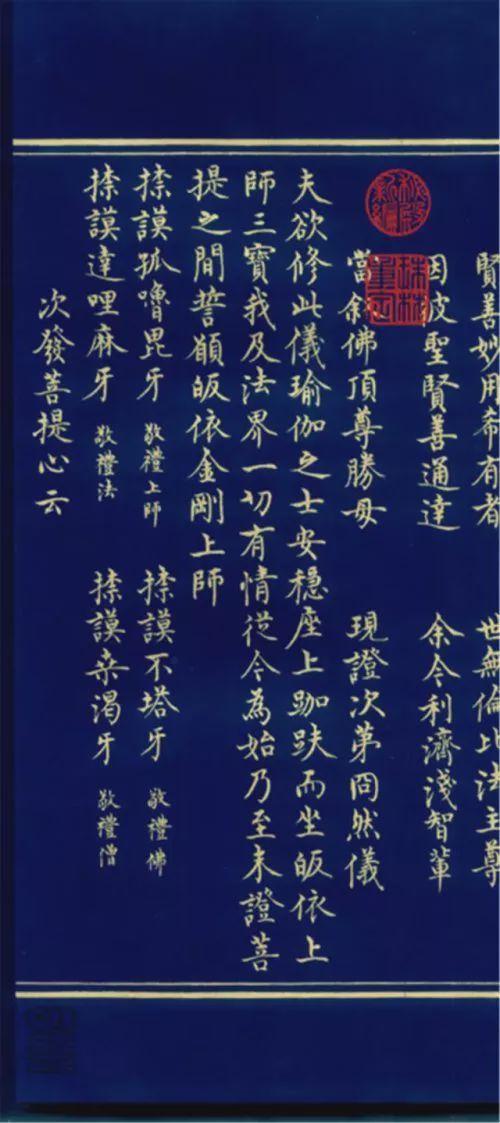 賢善妙用希有者　世無倫比法主尊
因彼聖賢善通達　余今利濟淺智輩
當叙佛頂尊勝母　現證次第冏然儀
夫欲修此儀瑜伽之士安穩座上跏趺而坐皈依上
師三寶我及法界一切有情從今為始乃至未證菩
提之間誓願皈依金剛上師
捺謨孤嚕毘牙　敬禮上師　捺謨不塔牙　敬禮佛
捺謨達哩麻牙　敬禮法　捺謨桒渴牙　敬禮僧
次發菩提心云
秘殿新編
珠林重定